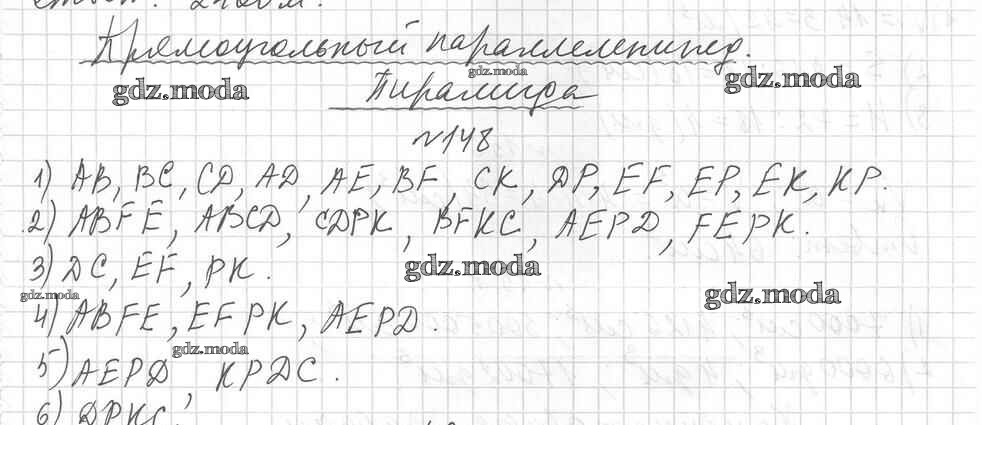 Прямоугольный параллелепипед.
Пирамида
№148
1) AB, BC, CD, AD, AE, BF, CK, DP, EF, EP, EK, KP.
2) ABFE, ABCD, CDPK, BFKC, AEPD, FEPK.
3) DC, EF, PK.
4) ABFE, EFPK, AEPD.
5) AEPD, KPDC.
6) DPKC,
gdz.moda
gdz.moda
gdz.moda
gdz.moda
gdz.moda
gdz.moda
gdz.moda